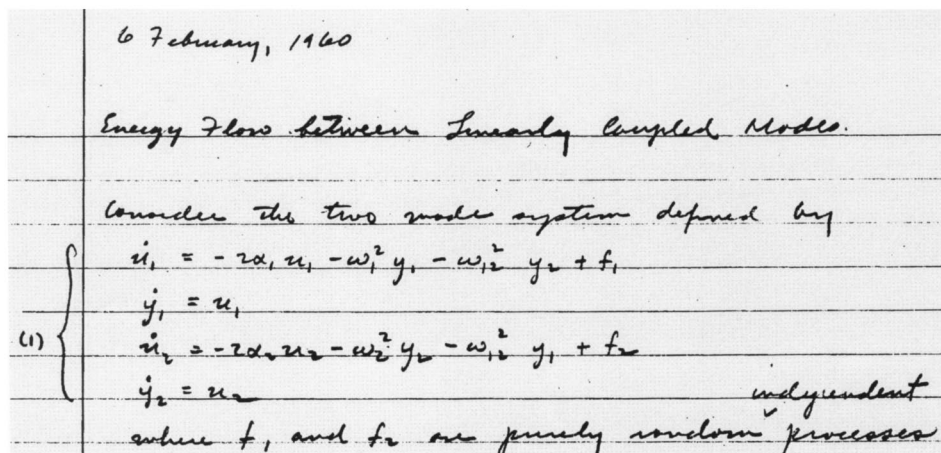 6 February, 1960
Energy Flow between Linearly Coupled Modes.
Consider the two mode system defined by
u̇₁ = -2α₁u₁ - ω₁² y₁ - ω₁₂² y₂ + f₁
ẏ₁ = u₁
(1)
u̇₂ = -2α₂u₂ - ω₂² y₂ - ω₁₂² y₁ + f₂
ẏ₂ = u₂
independent
where f₁ and f₂ are purely random processes